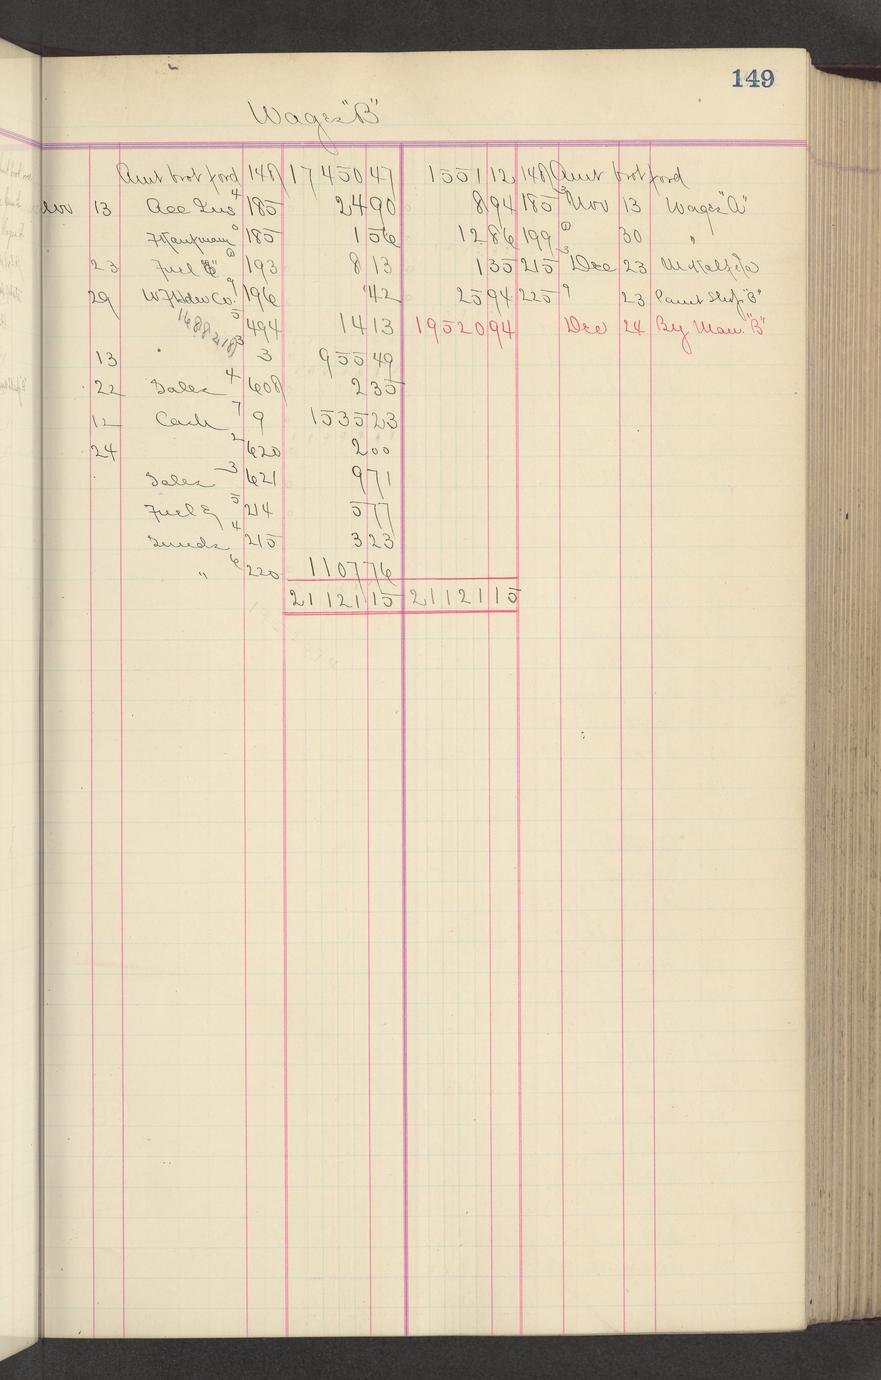 149
Wages "B"
Amt brot ford 148 17450 47 1551 12 148 Amt brot ford
Nov 13 Acc Ins 4 185 24 90 8 94 185 3 Nov 13 Wages "A"
F Kaufmann 0 185 1 56 12 86 199 0 30 "
23 Fuel "B" 0 193 8 13 1 35 215 3 Dec 23
29 W F Hdw Co. 9 196 42 25 94 225 9 23 Paint Shop "B"
5 494 14 13 19520 94 Dec 24 By Man. "B"
1688 218
13 3 3 955 49
22 Sales 4 608 2 35
12 Cash 7 9 1535 23
24 2 620 2 00
Sales 3 621 9 71
Fuel 5 214 5 77
Sunds 4 215 3 23
" 6 220 1107 76
21121 15 21121 15